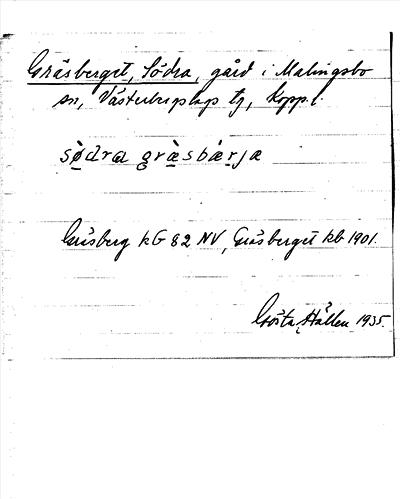 Gräsberget, Södra, gård i Malingsbo
sn, Västerbergslags tg, Kopp. l.
sø̀dra græ̀sbærja
Gräsberg kG 82 NV, Gräsberget kb 1901.
Gösta Hállen 1935.